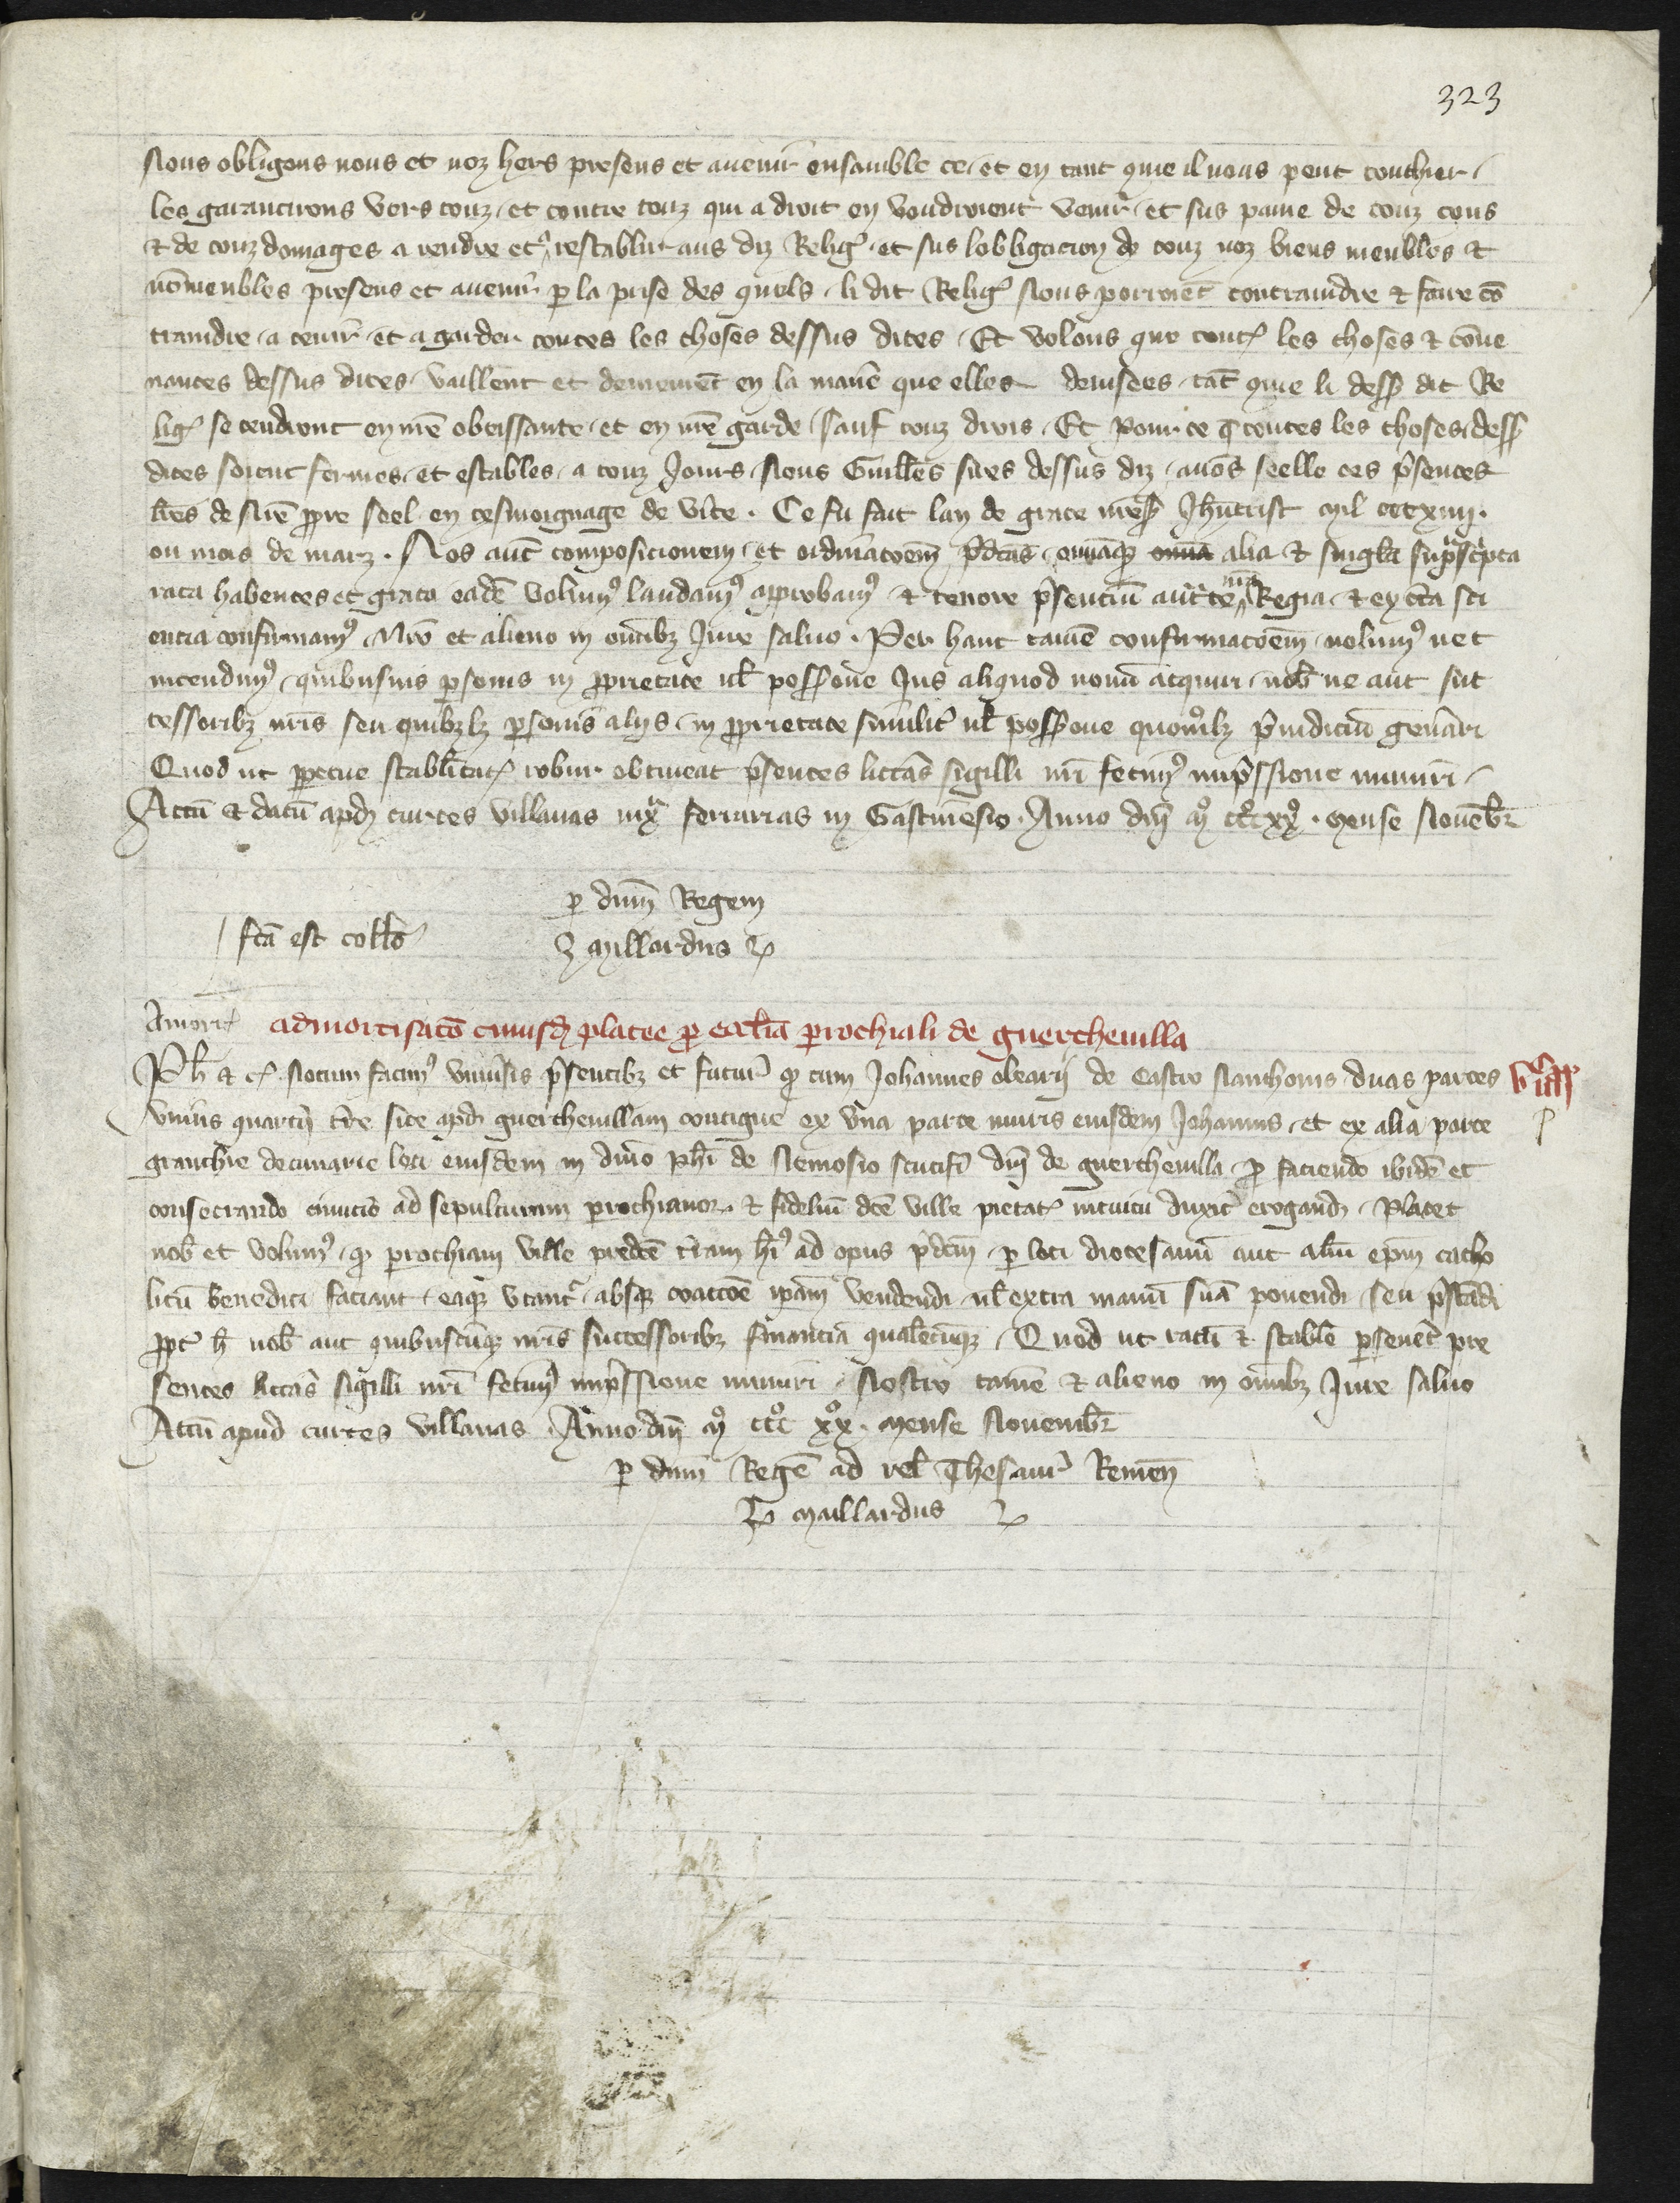 323
Nous obligons nous et noz hers presens et avenir ensamble ce et en tant que il nous peut touchier
les garantirons vers touz et contre touz qui a droit en voudroient venir et sus paine de touz cous
et de touz domages a rendre et restablir aus diz Relig et sus lobligacion de touz noz biens meubles et
nōmeubles presens et avenir p la prise des quels li dit Relig Nous porroiēt contraindre et faire cō
traindre a tenir et a garder toutes les choses dessus dites Et volons que tout les choses et cōve
nances dessus dites vaillent et demeurēt en la maniē que elles devisees tāt que li dess dit Re
lig se tendront en nrē obeissance et en nrē garde sauf touz drois Et Pour ce q toutes les choses dess
dites soient fermes et estables a touz Jours Nous Guill'es sires dessus diz avōs seelle ces p'sentes
lrēs de nrē ppre seel en tesmoignage de v'ite. Ce fu fait lan de grace nrēs Jh'ucrist mil cccxiiij.
ou mois de marz. Nos aūt composicionem et ordinac'oem p'dcās omniaq omnia alia et singla sup'sc'pta
rata habentes et grata eadē volum' laudam' approbam' et tenore p'sentiū auct'te nrā Regia et ex c'ta sci
encia confirmam' Nrō et alieno in om'ibz Jure salvo. Per hanc tamē confirmac'oem nolum' nec
intendim' quibusvis p'sonis in pprietate ul' poss'one Jus aliquod novū acquiri nob' ve aut suc
cessoribz nrīs seu quibzlz p'sonis aliis in pprietate similit' ul' poss'one quom'lz p'iudiciū gen'ari
Quod ut ppetue stabilitat' robur obtineat p'sentes litt'as sigilli nrī fecim' imp'ssione muniri
Actū et datū apd curtes villanas iux' ferrarias in Gastinesio. Anno dni m° ccc°xx°. mense Novēbr'
p dnm Regem
fcā est coll'o J maillardus
Amort' admortisac'o cuiusd platee p eccl'ia parrochiali de guerchevilla
Ph' et c' Notum facim' univ'sis p'sentibz et futur' q cum Johannes olearii de Castro Nanthonis duas partes
unius quart'ii t're site apd guerchevillam contigue ex una parte muris eiusdem Johannis et ex alia parte
granchie decimarie loci eiusdem in d'nio Ph'i de Nemosio scutif'i dni de guerchevilla p faciendo ibidē et
consecrando cimit'io ad sepulturam parrochianor' et fideliū dcē ville pietat' intuitu duxit' erogand Placet
nob' et volum' q parrochiani ville predcē t'ram h' ad opus p'dcm p loci diocesanū aut aliū epm catho
licū benedici faciant eaq' utant' absq' coacc'oe ipam vendendi ul' extra manū suā ponendi seu p'stādi
ppt' h' nob' aut quibuscūq' nrīs successoribz financiā qualēcūq' Quod ut ratū et stabile p'sev'et pre
sentes litt'as sigilli nrī fecim' imp'ssione muniri Nostro tamē et alieno in om'ibz Jure salvo
Actū apud curtes villanas Anno dni m° ccc° xx° mense Novembr'
p dnm Regē ad rel' Thesaur' Remen
J maillardus